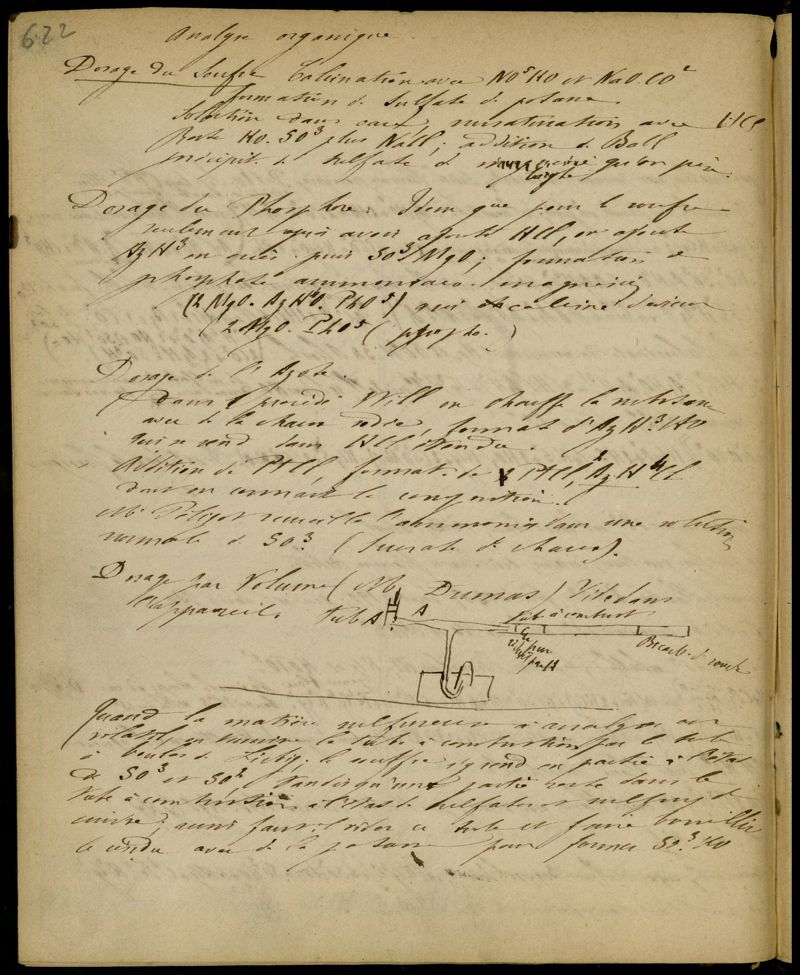 622
Analyse organique.
Dosage du Soufre Calcination avec NO⁵HO et NaO.CO²
formation de sulfate de potasse
Solution dans eau; sursaturation avec HCl
Reste HO.SO³ plus NaCl; addition de BaCl
précipité de sulfate de qu'on pèse.
Dosage du Phosphore. Idem que pour le soufre
seulement après avoir ajouté HCl, on ajoute
AzH³ en excès puis SO³MgO; formation de
phosphate ammoniaco magnésien
(2MgO.AzH⁴O.PhO⁵) qui calciné devient
2MgO.PhO⁵ (pyropho.)
Dosage de l'Azote.
Dans le procédé Will on chauffe la substance
avec de la chaux sodée, format. d'AzH³.HO
qui se rend dans HCl étendu.
Addition de PtCl², format. de PtCl², AzH⁴Cl
dont on connaît la composition.
Mr Peligot recueille l'ammoniaque dans une solution
normale de SO³. (Sucrate de chaux).
Dosage par Volume (Mr DUMAS) Vide dans
l'appareil. tub A A tube à combust.
Cu pur
Bicarb. de soude
Quand la matière sulfureuse à analyser est
volatile, on termine le tube à combustion par le tube
à boules de Liebig; le soufre s'y rend en partie à l'état
de SO³ et SO² tandis qu'une partie reste dans le
tube à combustion à l'état de sulfate et sulfure de
cuivre; aussi faut-il vider ce tube et faire bouillir
le résidu avec de la potasse pour former SO³.KO